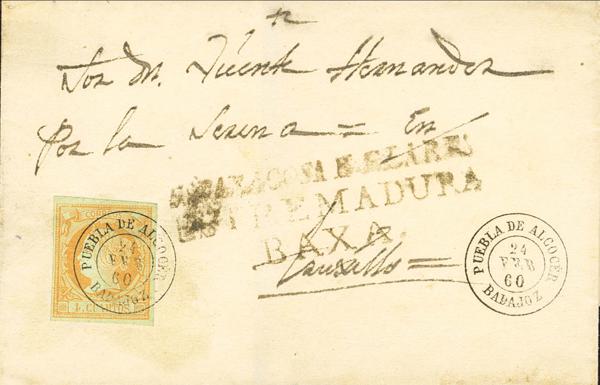 Sor Dn. Vicente Hernandez
Por la Serena = En
ESTREMADURA
BAXA.
CORREOS
PUEBLA DE ALGOCER
24
FEB
60
BADAJOZ
PUEBLA DE ALGOCER
24
FEB
60
BADAJOZ